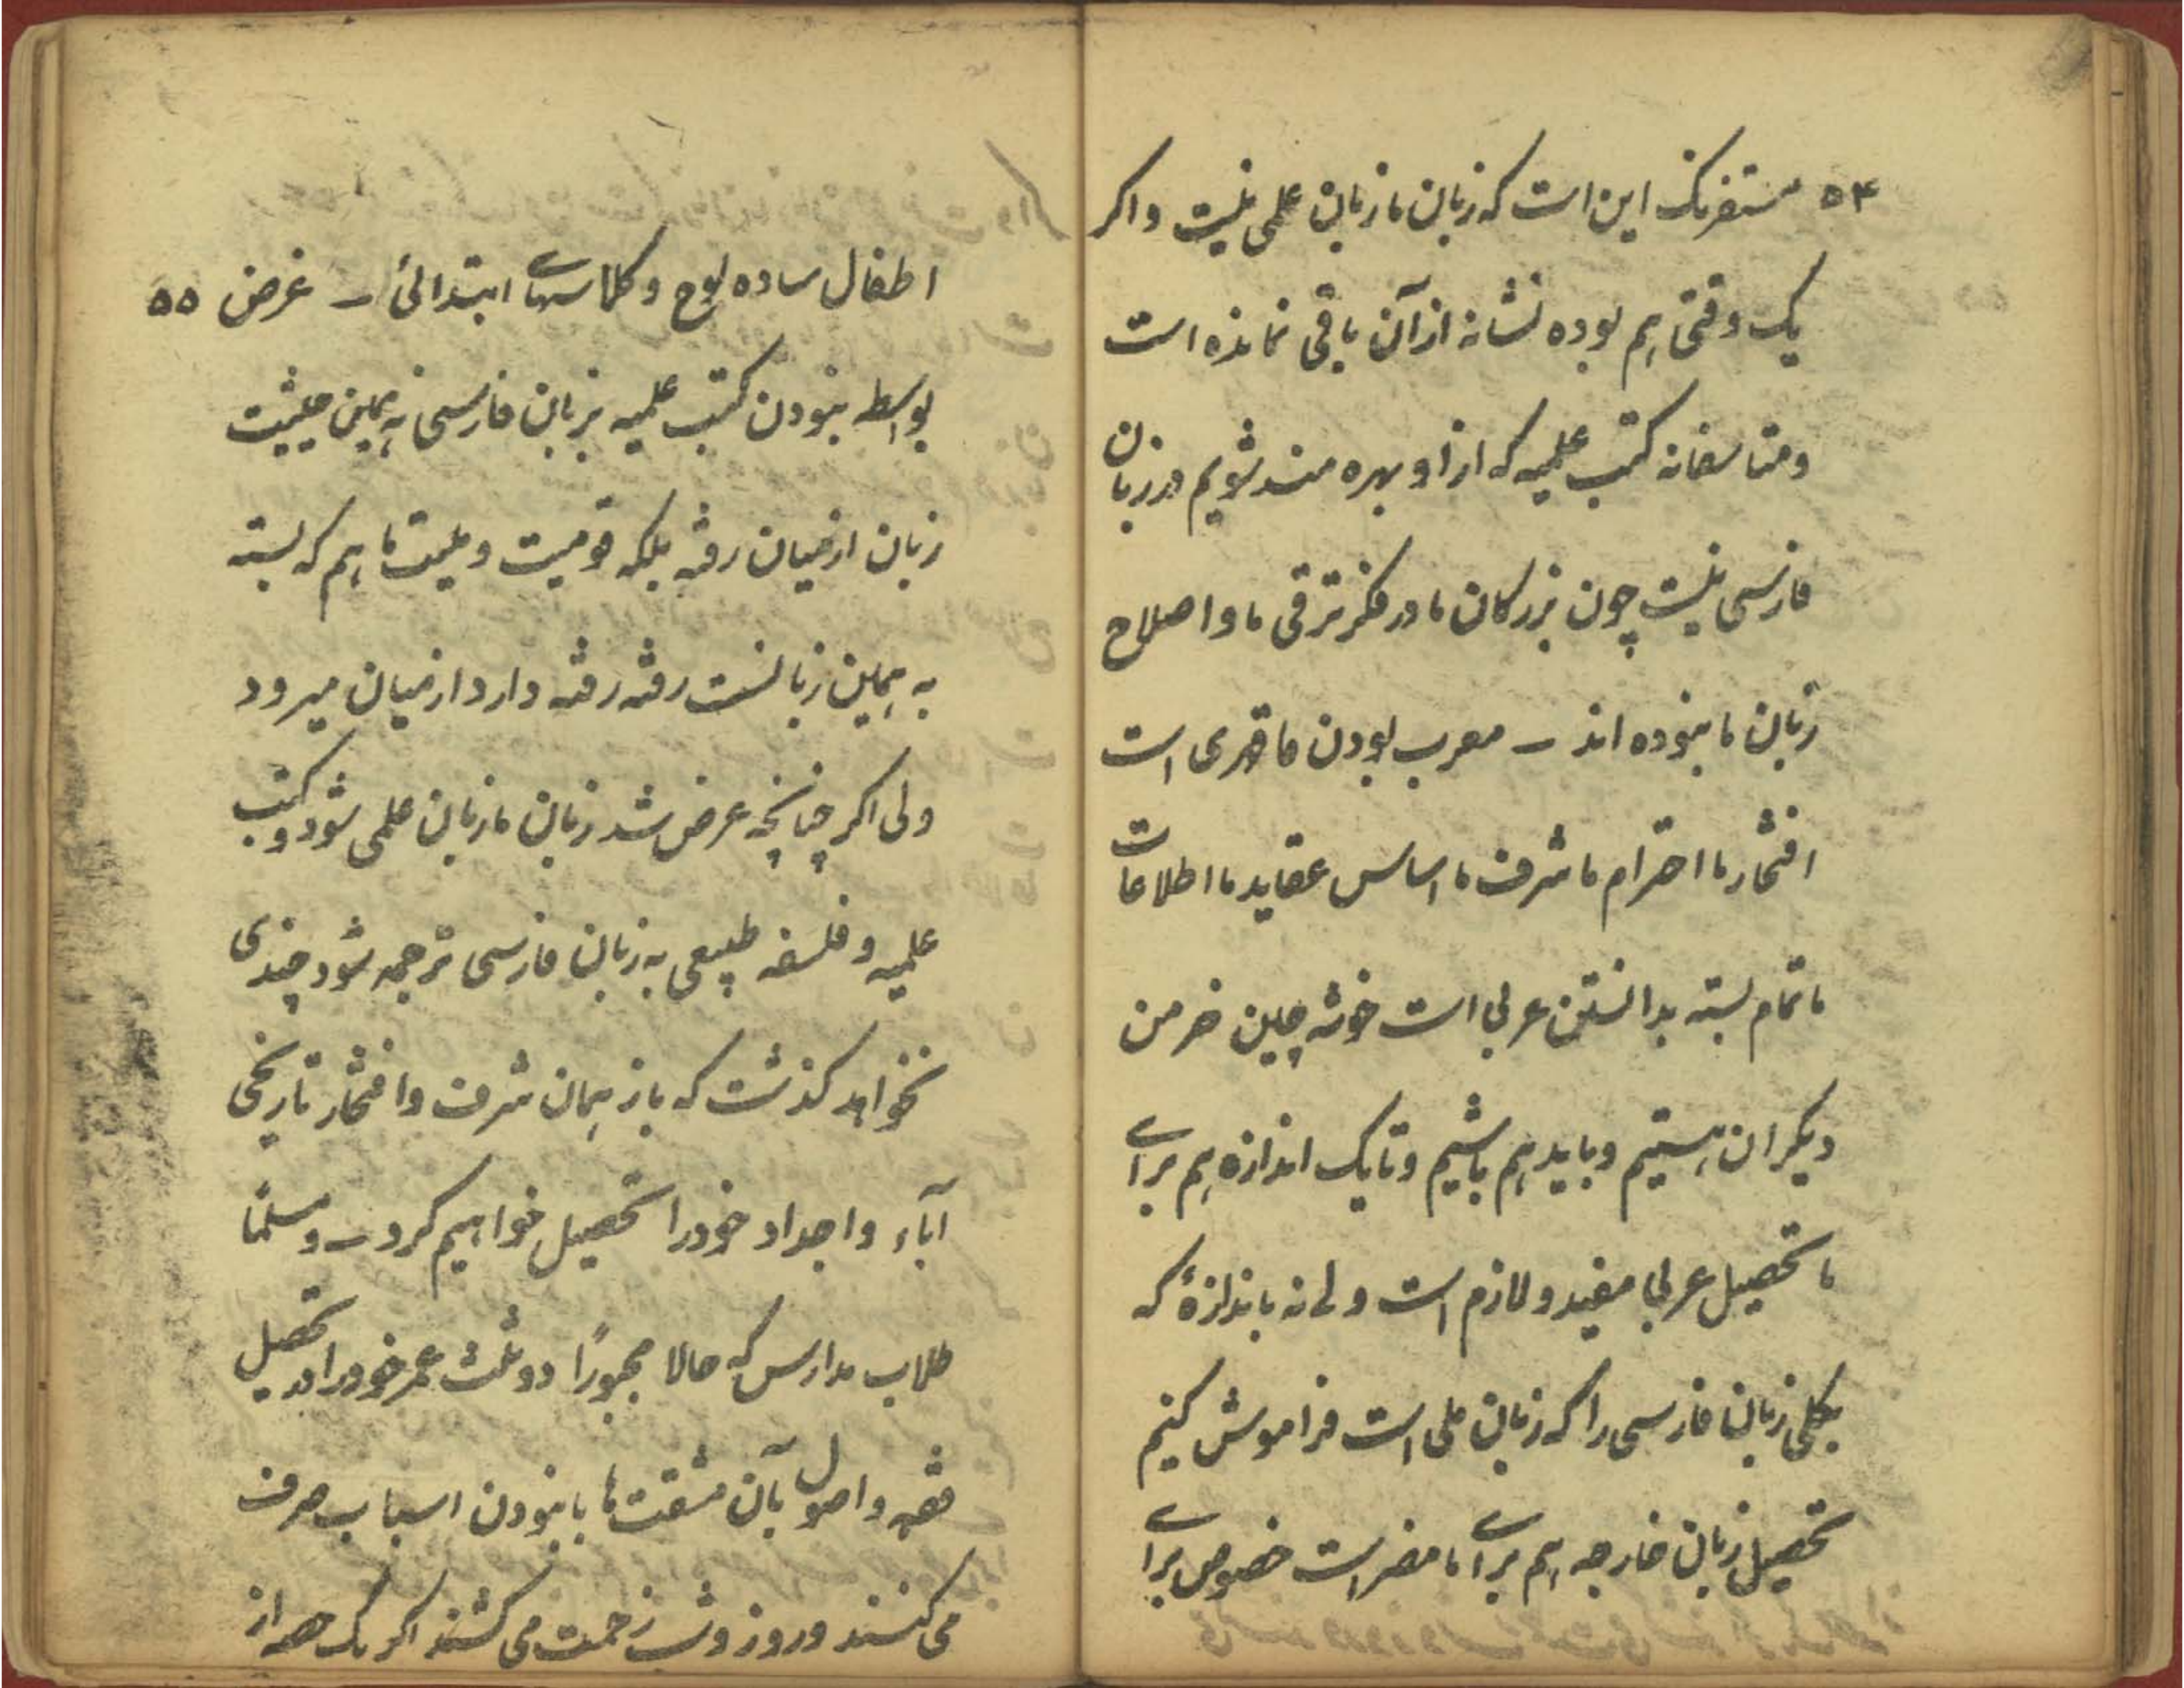 ۵۴ مستفرنک این است که زبان ما زبان علمی نیست و اکر
یک وقتی هم بوده نشانه از آن باقی نمانده است
ومتاسفانه کتب علمیه که از او بهره مند شویم در زبان
فارسی نیست چون بزرکان ما در فکر ترقی ما و اصلاح
زبان ما نبوده اند – معرب بودن ما قهری است
افتخار ما احترام ما شرف ما اساس عقاید ما اطلاعات
ما تمام بسته بدانستن عربی است خوشه چین خرمن
دیکران هستیم و باید هم باشیم و تا یک اندازه هم برای
ما تحصیل عربی مفید و لازم است ولی نه باندازهٔ که
بکلی زبان فارسی را که زبان ملی است فراموش کنیم
تحصیل زبان خارجه هم برای ما مضر است خصوص برای
اطفال ساده لوح و کلاسهای ابتدائی – غرض ۵۵
بواسطه نبودن کتب علمیه بزبان فارسی نه همین حیثیت
زبان از میان رفته بلکه قومیت و ملیت ما هم که بسته
به همین زبانست رفته رفته دارد از میان میرود
ولی اکر چنانچه عرض شد زبان ما زبان علمی شود و کتب
علمیه و فلسفه طبیعی به زبان فارسی ترجمه شود چندی
نخواهد کذشت که باز همان شرف و افتخار تاریخی
آباء و اجداد خود را تحصیل خواهیم کرد – و مسلماً
طلاب مدارس که حالا مجبوراً دو ثلث عمر خود را در تحصیل
فقه و اصول بآن مشقت ها با نبودن اسباب صرف
می کنند و روز و شب زحمت می کشند اکر یک همه از